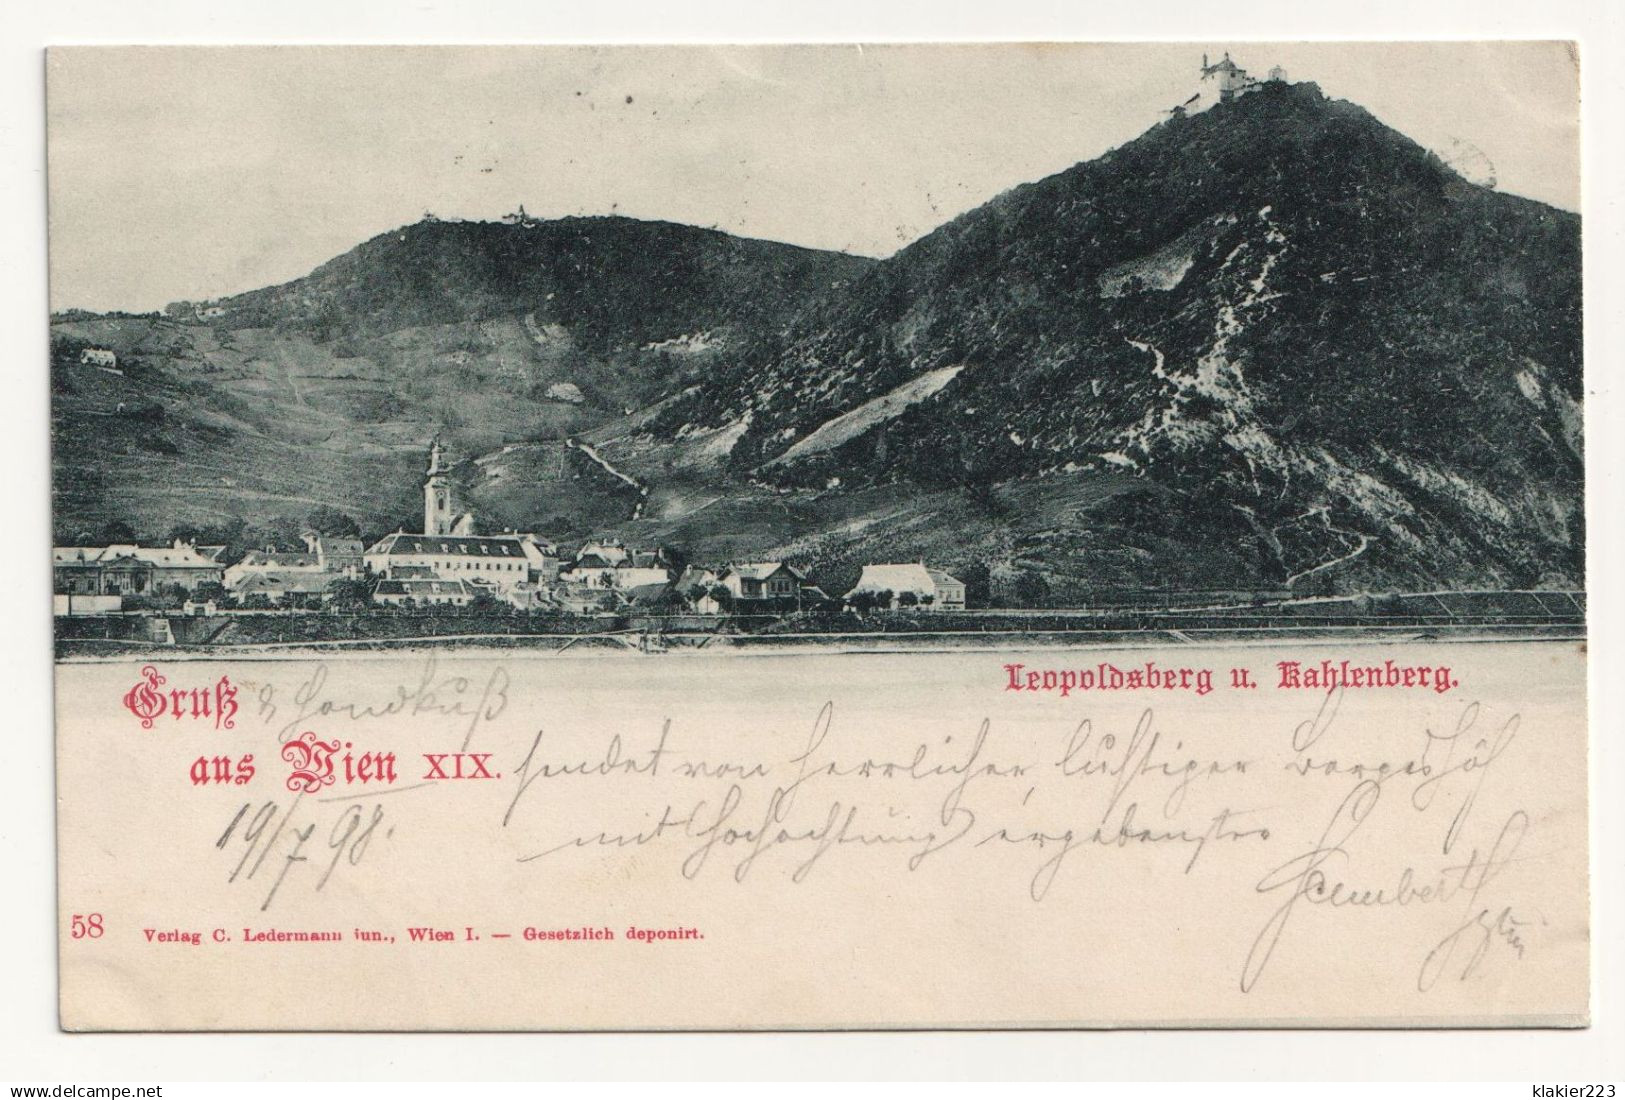 Leopoldsberg u. Kahlenberg.
Gruß & Handkuß
aus Wien XIX. sendet von herrlicher, luftiger Bergeshöh
19/7 98. mit Hochachtung ergebenster
58 Verlag C. Ledermann jun., Wien I. — Gesetzlich deponirt.
www.delcampe.net
klakier223